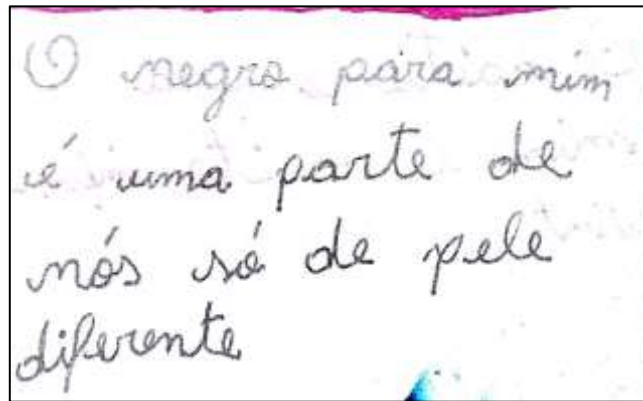 O negro para mim
é uma parte de
nós só de pele
diferente